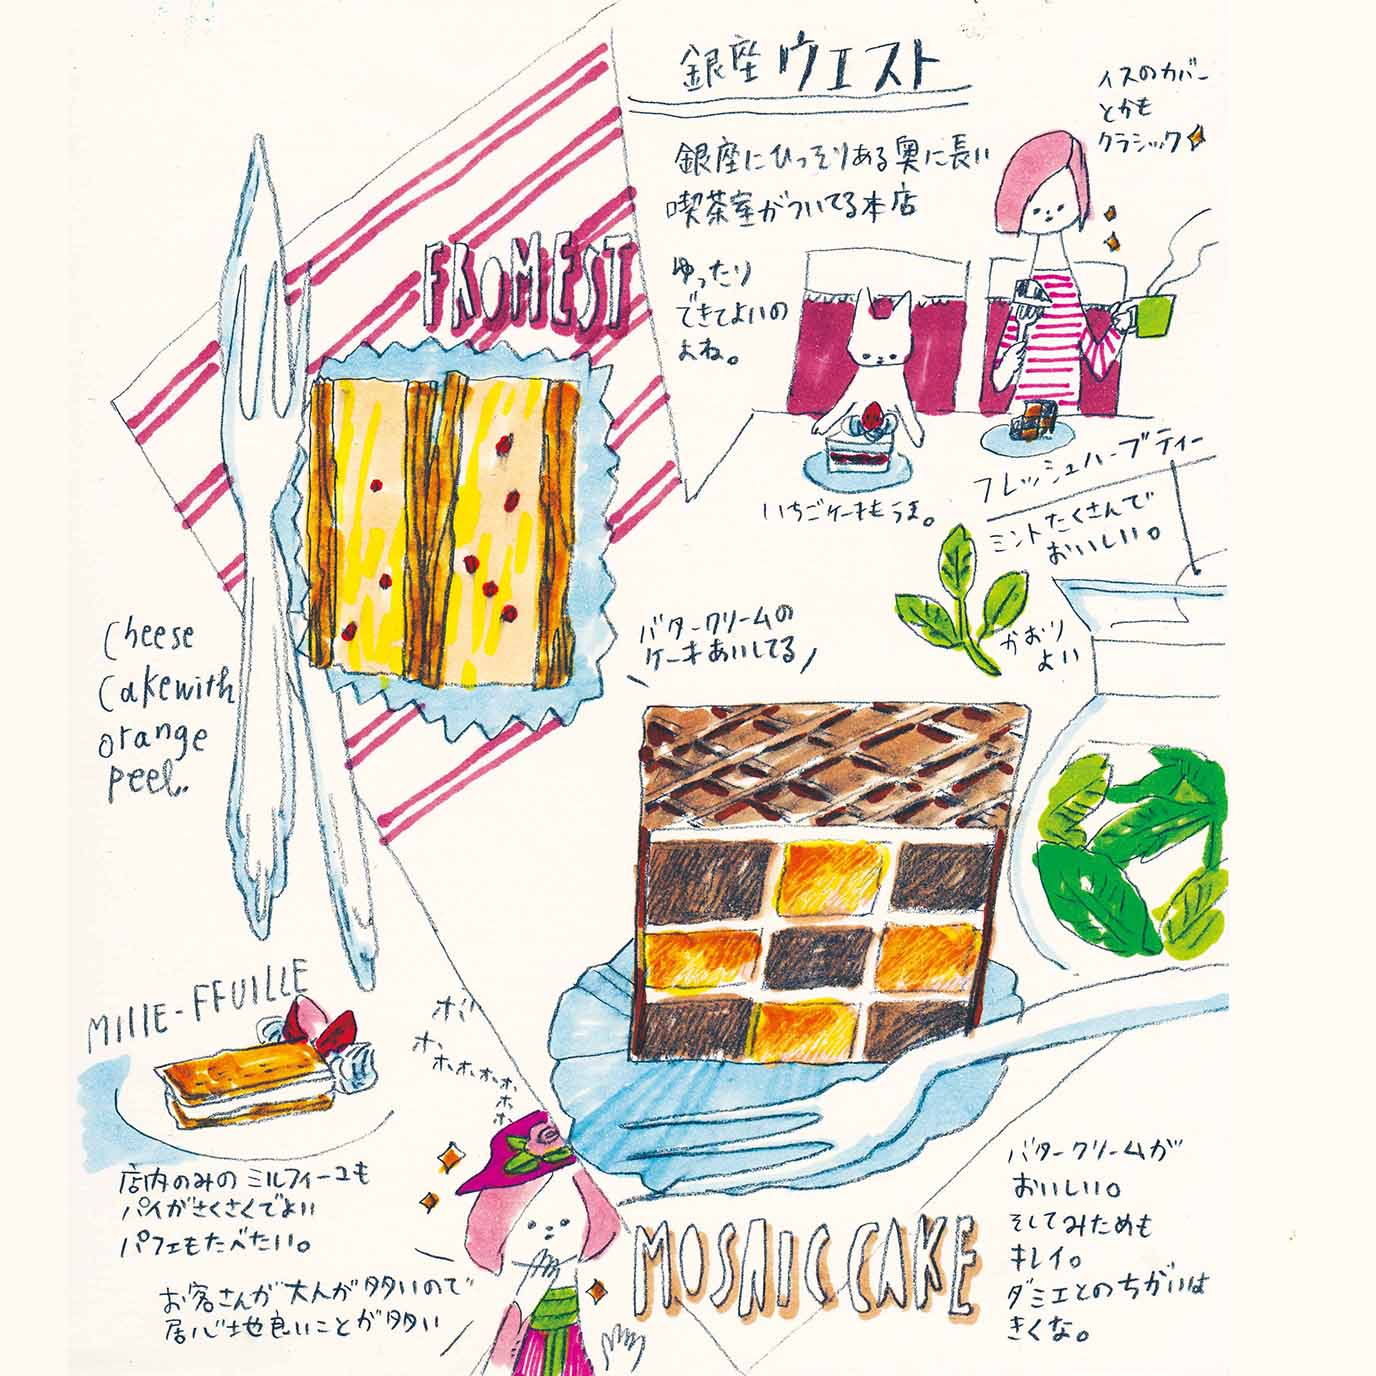 銀座ウエスト
銀座にひっそりある奥に長い
喫茶室がついてる本店
ゆったり
できてよいの
よね。
イスのカバー
とかも
クラシック
FROMEST
いちごケーキもうま。
フレッシュハーブティー
ミントたくさんで
おいしい。
かおり
よい
Cheese
Cake with
orange
peel.
バタークリームの
ケーキあいしてる
MIllE-FFUILLE
店内のみのミルフィーユも
パイがさくさくでよい
パフェもたべたい。
お客さんが大人が多いので
居心地良いことが多い
ホ
ホ
ホホホホ
ホ
ホ
MOSAIC CAKE
バタークリームが
おいしい。
そしてみためも
キレイ。
ダミエとのちがいは
きくな。